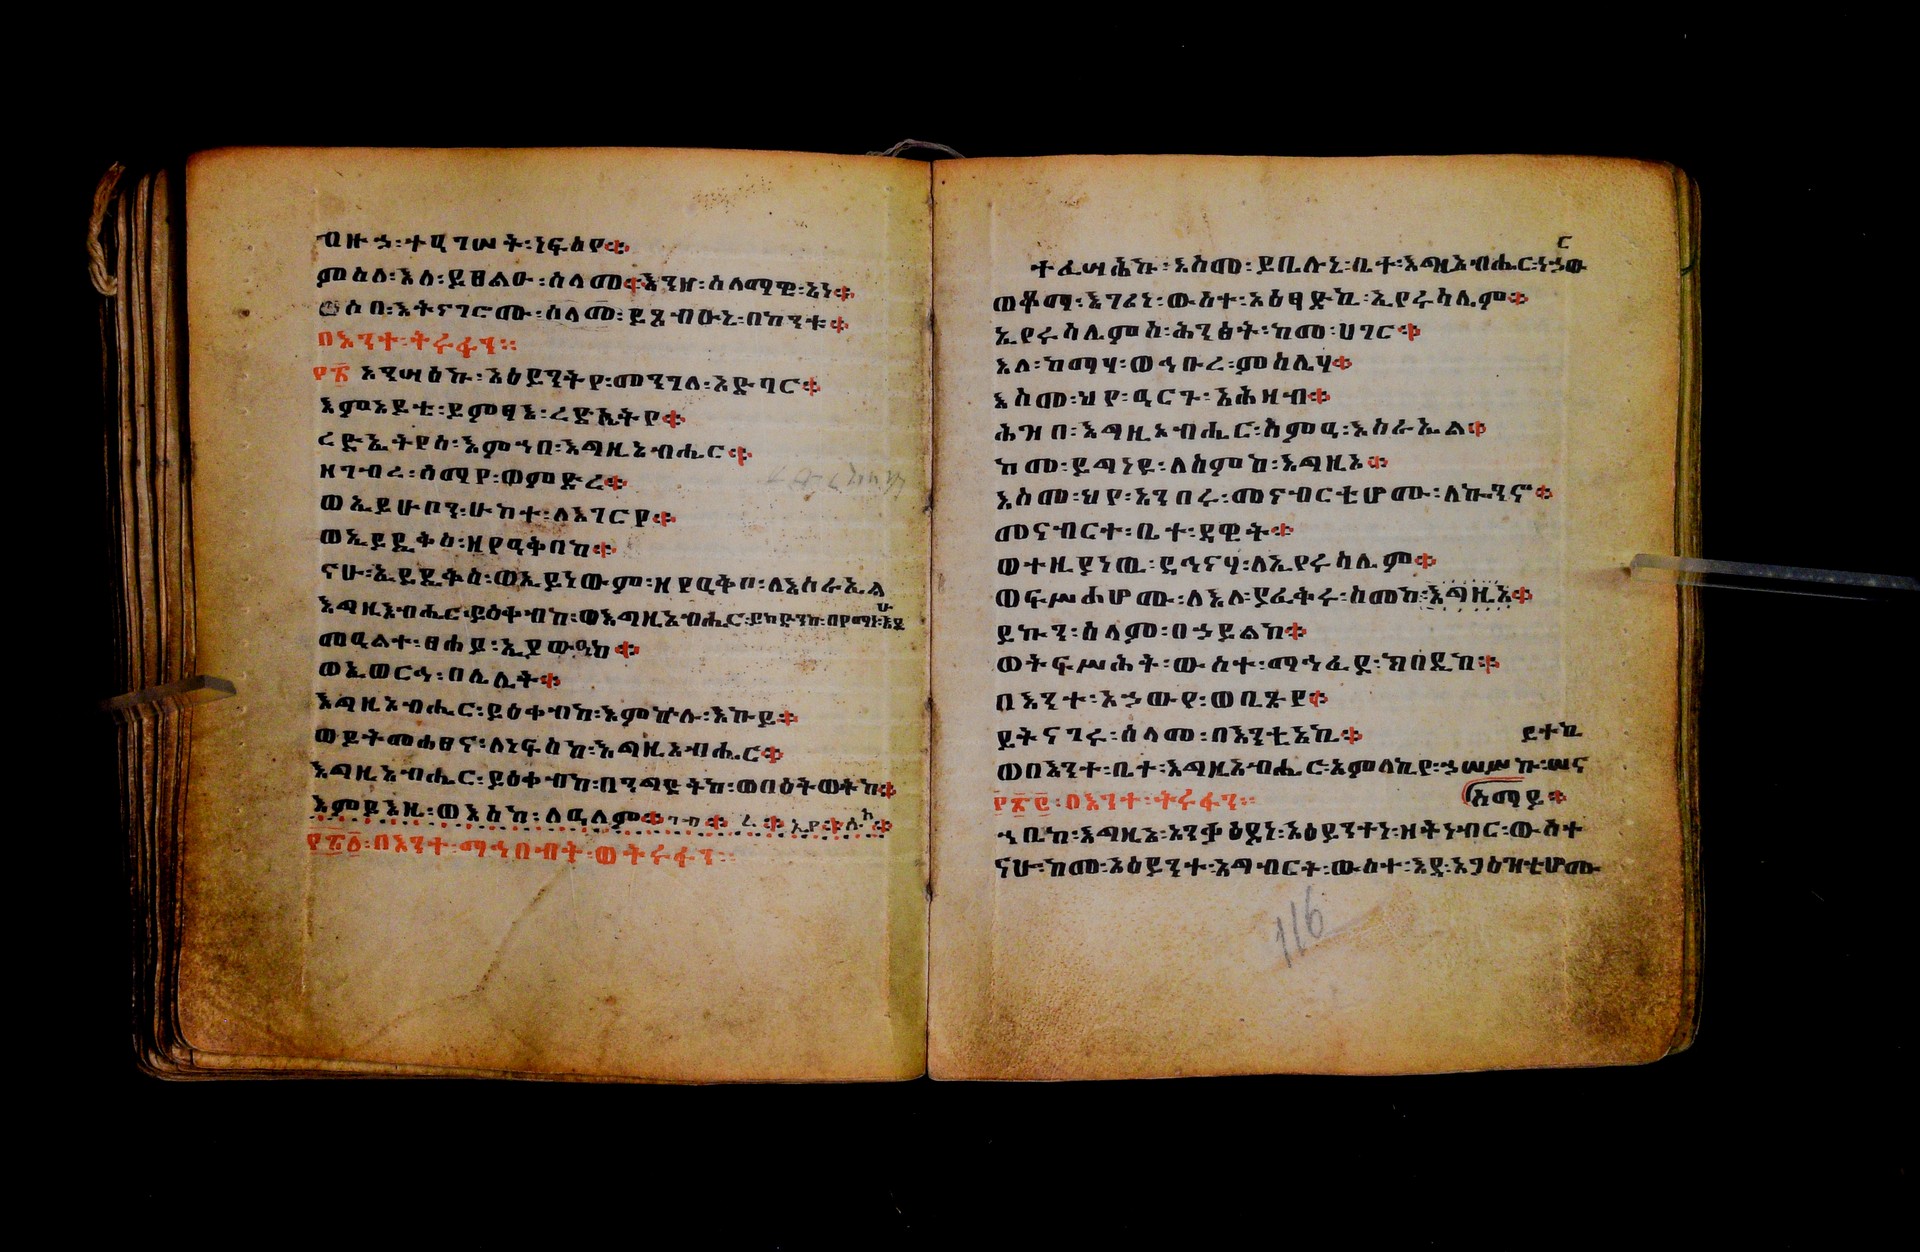 ብዙኃ፡ተዓገሠት፡ነፍስየ፨
ምስለ፡እለ፡ይጸልው፡ሰላመ፨እንዘ፡ሰላማዊ፡አነ፨
ወሶበ፡እትናገሮሙ፡ሰላመ፡ይፀብዑኒ፡በከንቱ፨
በእንተ፡ትሩፋን።
፻፳ አንሣዕኩ፡አዕይንትየ፡መንገለ፡አድባር፨
እምአይቴ፡ይምፃእ፡ረድኤትየ፨
ረድኤትየሰ፡እምኀበ፡እግዚአብሔር፨
ዘገብረ፡ሰማየ፡ወምድረ፨
ወኢይሁቦን፡ሁከተ፡ለእገርየ፨
ወኢይዴቅስ፡ዘየዓቅበከ፨
ናሁ፡ኢይዴቅስ፡ወኢይነውም፡ዘየዓቅቦ፡ለእስራኤል
እግዚአብሔር፡ይዕቀብከ፡ወእግዚአብሔር፡ይክድንከ፡በየማነ፡እዴሁ
መዓልተ፡ፀሐይ፡ኢያውዒከ፨
ወኢወርኅ፡በሌሊት፨
እግዚአብሔር፡ይዕቀብከ፡እምኵሉ፡እኩይ፨
ወይትመሐፀና፡ለነፍስከ፡እግዚአብሔር፨
እግዚአብሔር፡ይዕቀብከ፡በንግደትከ፡ወበዕትወትከ፨
እምይእዜ፡ወእስከ፡ለዓለም፨
በእንተ፡ማኅበብት፡ወትሩፋን።
ተፈሣሕኩ፡እስመ፡ይቤሉኒ፡ቤተ፡እግዚአብሔር፡ነኃውር
ወቆማ፡እገሪነ፡ውስተ፡አዕፃድኪ፡ኢየሩሳሌም፨
ኢየሩሳሌምሰ፡ሕንፅት፡ከመ፡ሀገር፨
እለ፡ከማሃ፡ወኅቡረ፡ምስሌሃ፨
እስመ፡ህየ፡ዓርጉ፡አሕዛብ፨
ሕዝበ፡እግዚአብሔር፡ስምዓ፡እስራኤል፨
ከመ፡ይግነዩ፡ለስምከ፡እግዚኦ፨
እስመ፡ህየ፡አንበሩ፡መናብርቲሆሙ፡ለኰንኖ፨
መናብርተ፡ቤተ፡ዳዊት፨
ወተዜያነዉ፡ዳኅናሃ፡ለኢየሩሳሌም፨
ወፍሥሐሆሙ፡ለእለ፡ያፈቅሩ፡ስመከ፡እግዚኦ፨
ይኩን፡ሰላም፡በኃይልከ፨
ወትፍሥሕት፡ውስተ፡ማኅፈደ፡ክበዲከ፨
በእንተ፡አኃውየ፡ወቢጽየ፨
ይትናገሩ፡ሰላመ፡በእንቲአኪ፨
ወበእንተ፡ቤተ፡እግዚአብሔር፡አምላኪየ፡ኃሠሥኩ፡ሠናይተኪ
በእንተ፡ትሩፋን። ሰማይ፨
ኀቤከ፡እግዚኦ፡አንቃዕደነ፡አዕይንተነ፡ዘትነብር፡ውስተ
ናሁ፡ከመ፡አዕይንተ፡አግብርት፡ውስተ፡እደ፡አጋዕዝቲሆሙ
116